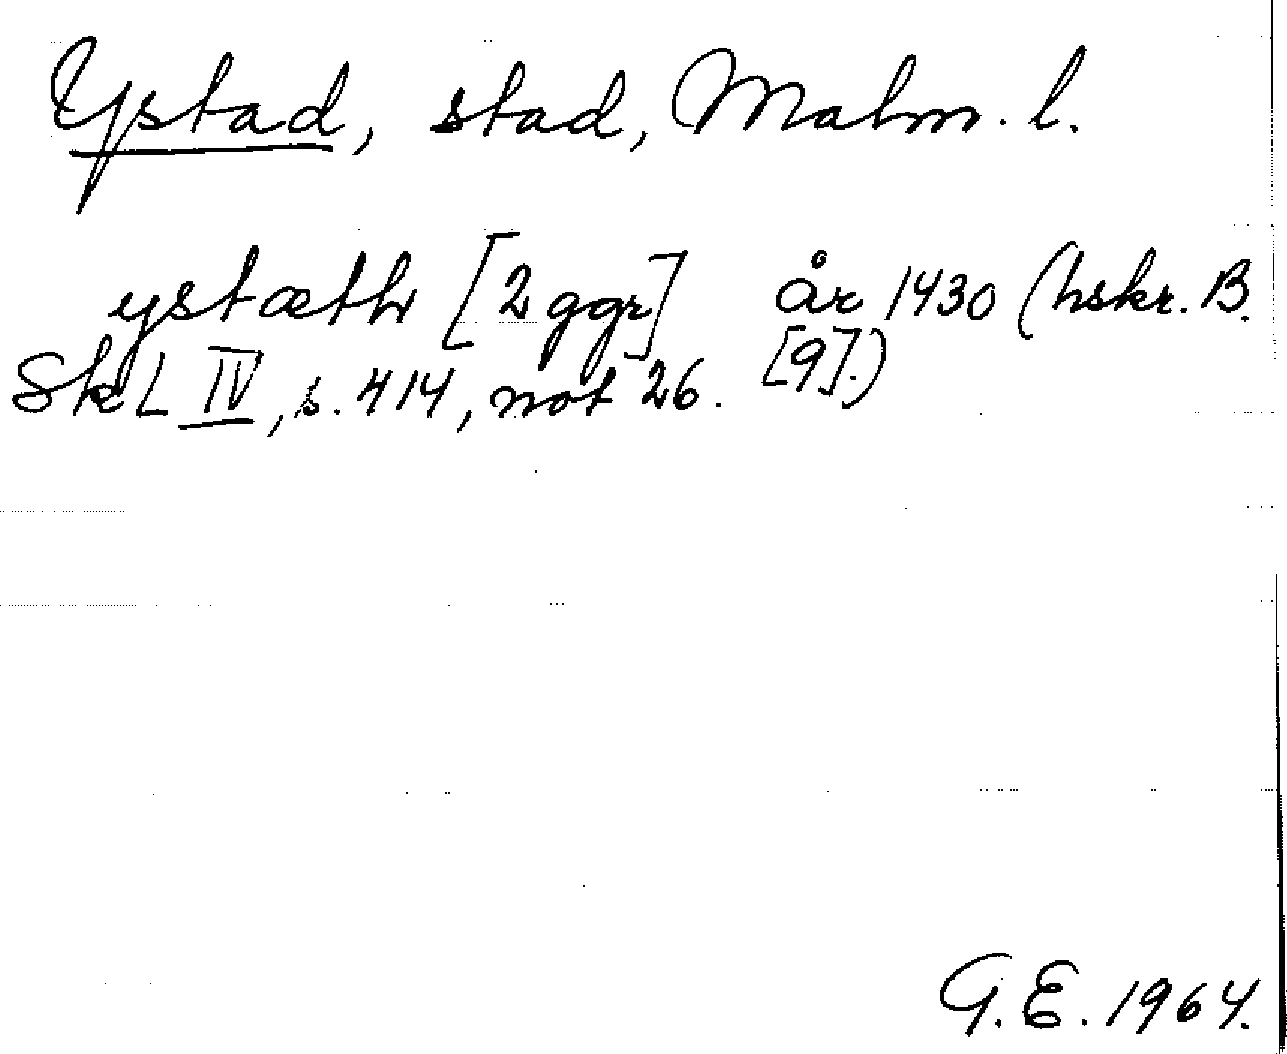 Ystad, stad, Malm. l.
ystæth [2 ggr] år 1430 (hskr. B.
SkL IV, s. 414, not 26. [9].)
G.E. 1964.